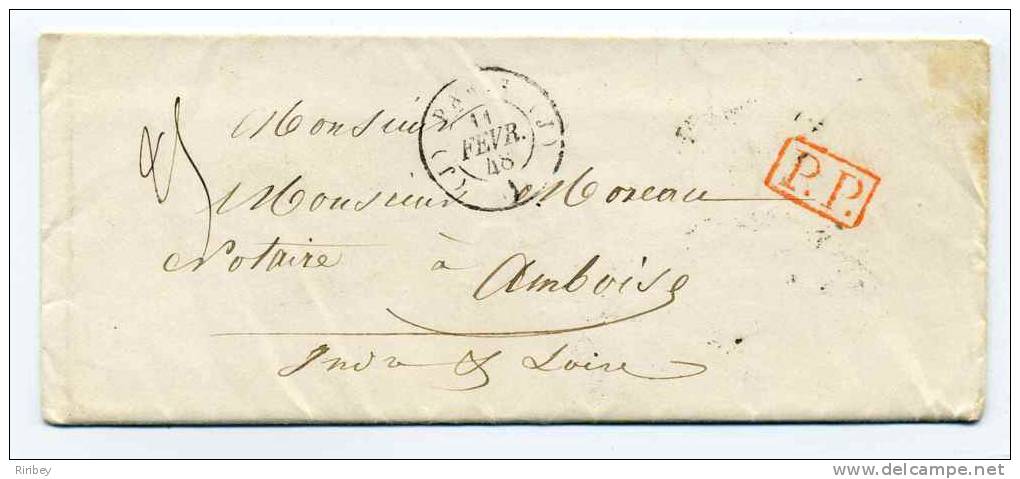 Monsieur
Monsieur Moreau
Notaire à Amboise
Indre & Loire
PARIS (J)
11
FEVR.
48
(J)
P.P.
Ribey
www.delcampe.net